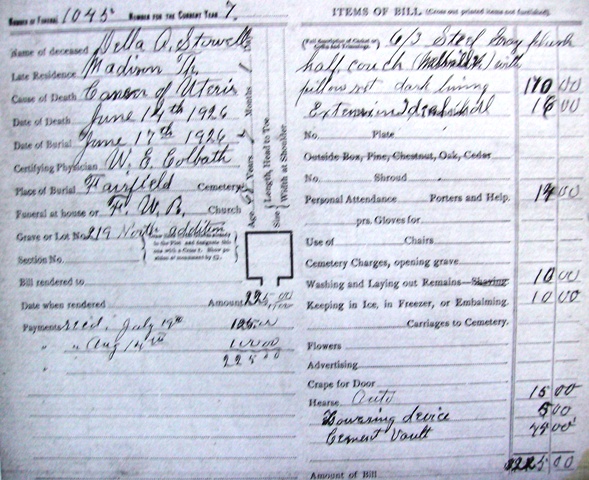 NUMBER OF FUNERAL 1045 NUMBER FOR THE CURRENT YEAR 7.
Name of deceased Della A. Stowell
Late Residence Madison Tp.
Cause of Death Cancer of Uteris
Date of Death June 14th 1926
Date of Burial June 17th 1926
Certifying Physician W. E. Colbath
Place of Burial Fairfield Cemetery
Funeral at house or F. W. B. Church
Grave or Lot No. 219 North addition
Section No.
Bill rendered to
Date when rendered Amount 225.00
Payments Recd. July 19th 125.00
" " Aug 14th 100.00
" 225.00
Age Years Months
Size Length, Head to Toe
Width at Shoulder
ITEMS OF BILL (Cross out printed items not furnished).
6/3 Steel Gray plush
half couch with
pillow set dark lining 170 00
Extension 18 00
No. Plate
Outside Box, Pine, Chestnut, Oak, Cedar
No. Shroud
Personal Attendance Porters and Help. 00
prs. Gloves for
Use of Chairs
Cemetery Charges, opening grave
Washing and Laying out Remains—Shaving 10 00
Keeping in Ice, in Freezer, or Embalming. 10 00
Carriages to Cemetery.
Flowers
Advertising
Crape for Door
Hearse Auto 15 00
Lowering device 5 00
Cement Vault 75 00
225 00
Amount of Bill